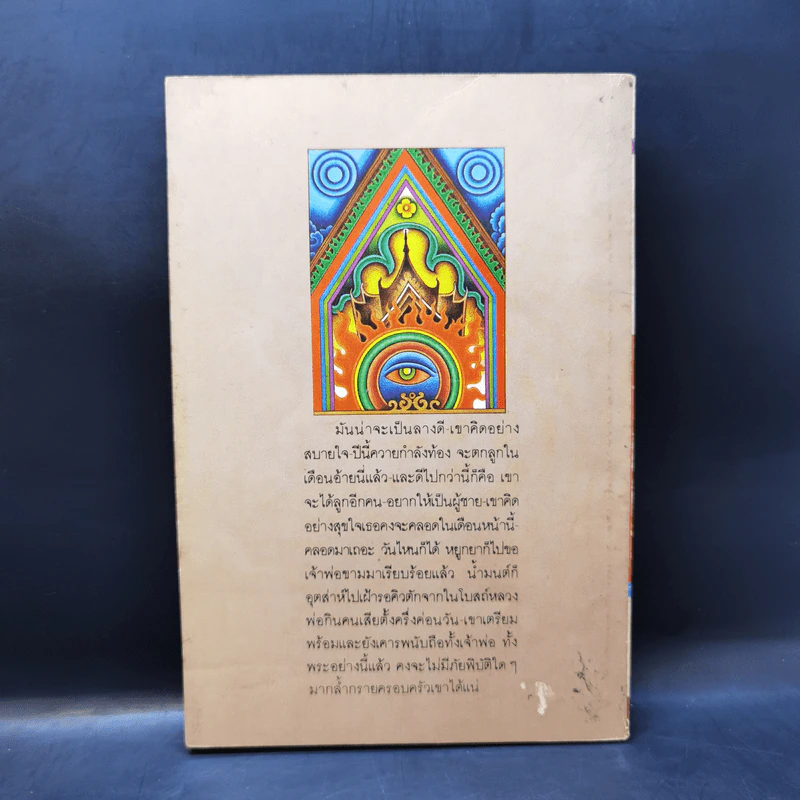 มันน่าจะเป็นลางดี-เขาคิดอย่าง
สบายใจ-ปีนี้ควายกำลังท้อง จะตกลูกใน
เดือนอ้ายนี่แล้ว-และดีไปกว่านี้ก็คือ เขา
จะได้ลูกอีกคน-อยากให้เป็นผู้ชาย-เขาคิด
อย่างสุขใจเธอคงจะคลอดในเดือนหน้านี้-
คลอดมาเถอะ วันไหนก็ได้ หยูกยาก็ไปขอ
เจ้าพ่อขามมาเรียบร้อยแล้ว น้ำมนต์ก็
อุตส่าห์ไปเฝ้ารอคิวตักจากในโบสถ์หลวง
พ่อกินคนเสียตั้งครึ่งค่อนวัน-เขาเตรียม
พร้อมและยังเคารพนับถือทั้งเจ้าพ่อ ทั้ง
พระอย่างนี้แล้ว คงจะไม่มีภัยพิบัติใด ๆ
มากล้ำกรายครอบครัวเขาได้แน่